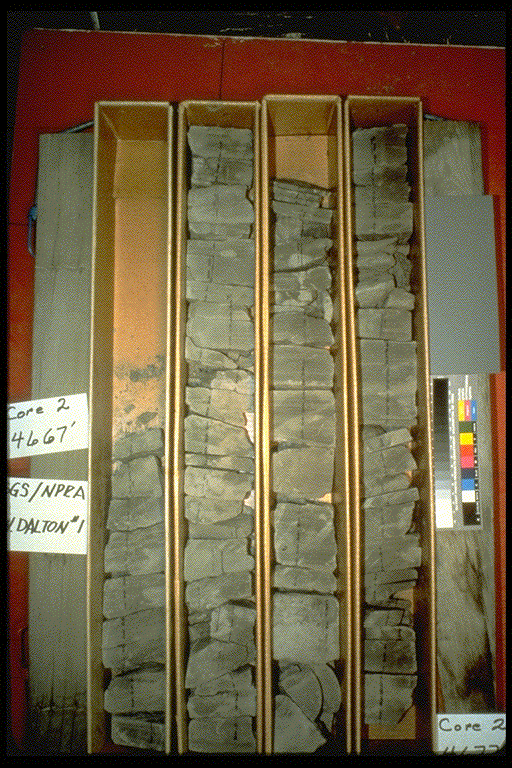 Core 2
4667'
GS/NPRA
DALTON #1
Core 2